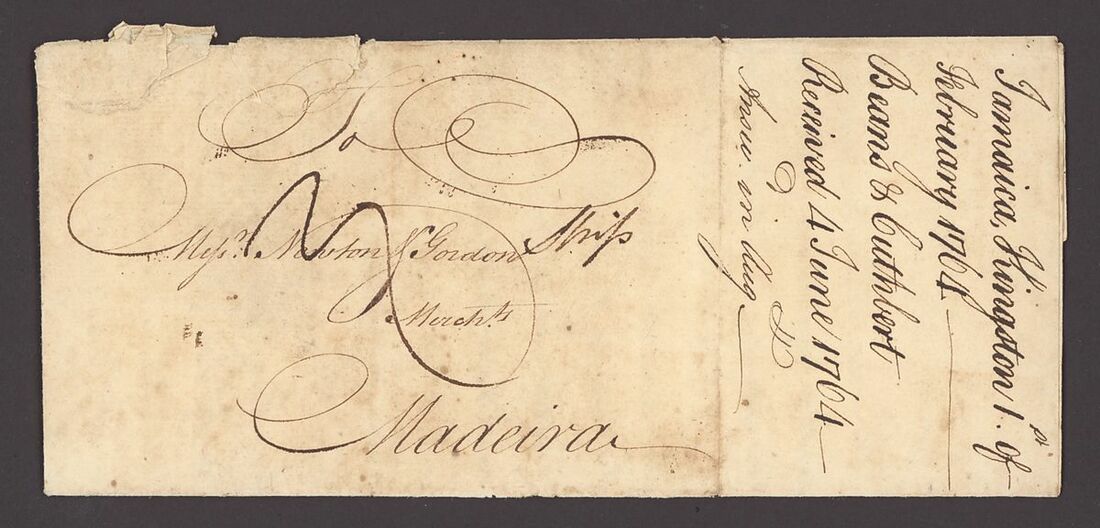 To
Mess.rs Newton & Gordon
Ship
Merch.ts
Madeira
Jamaica, Kingston 1.st of
February 1764
Beans & Cuthbert
Received 4 June 1764
Answ. in Aug